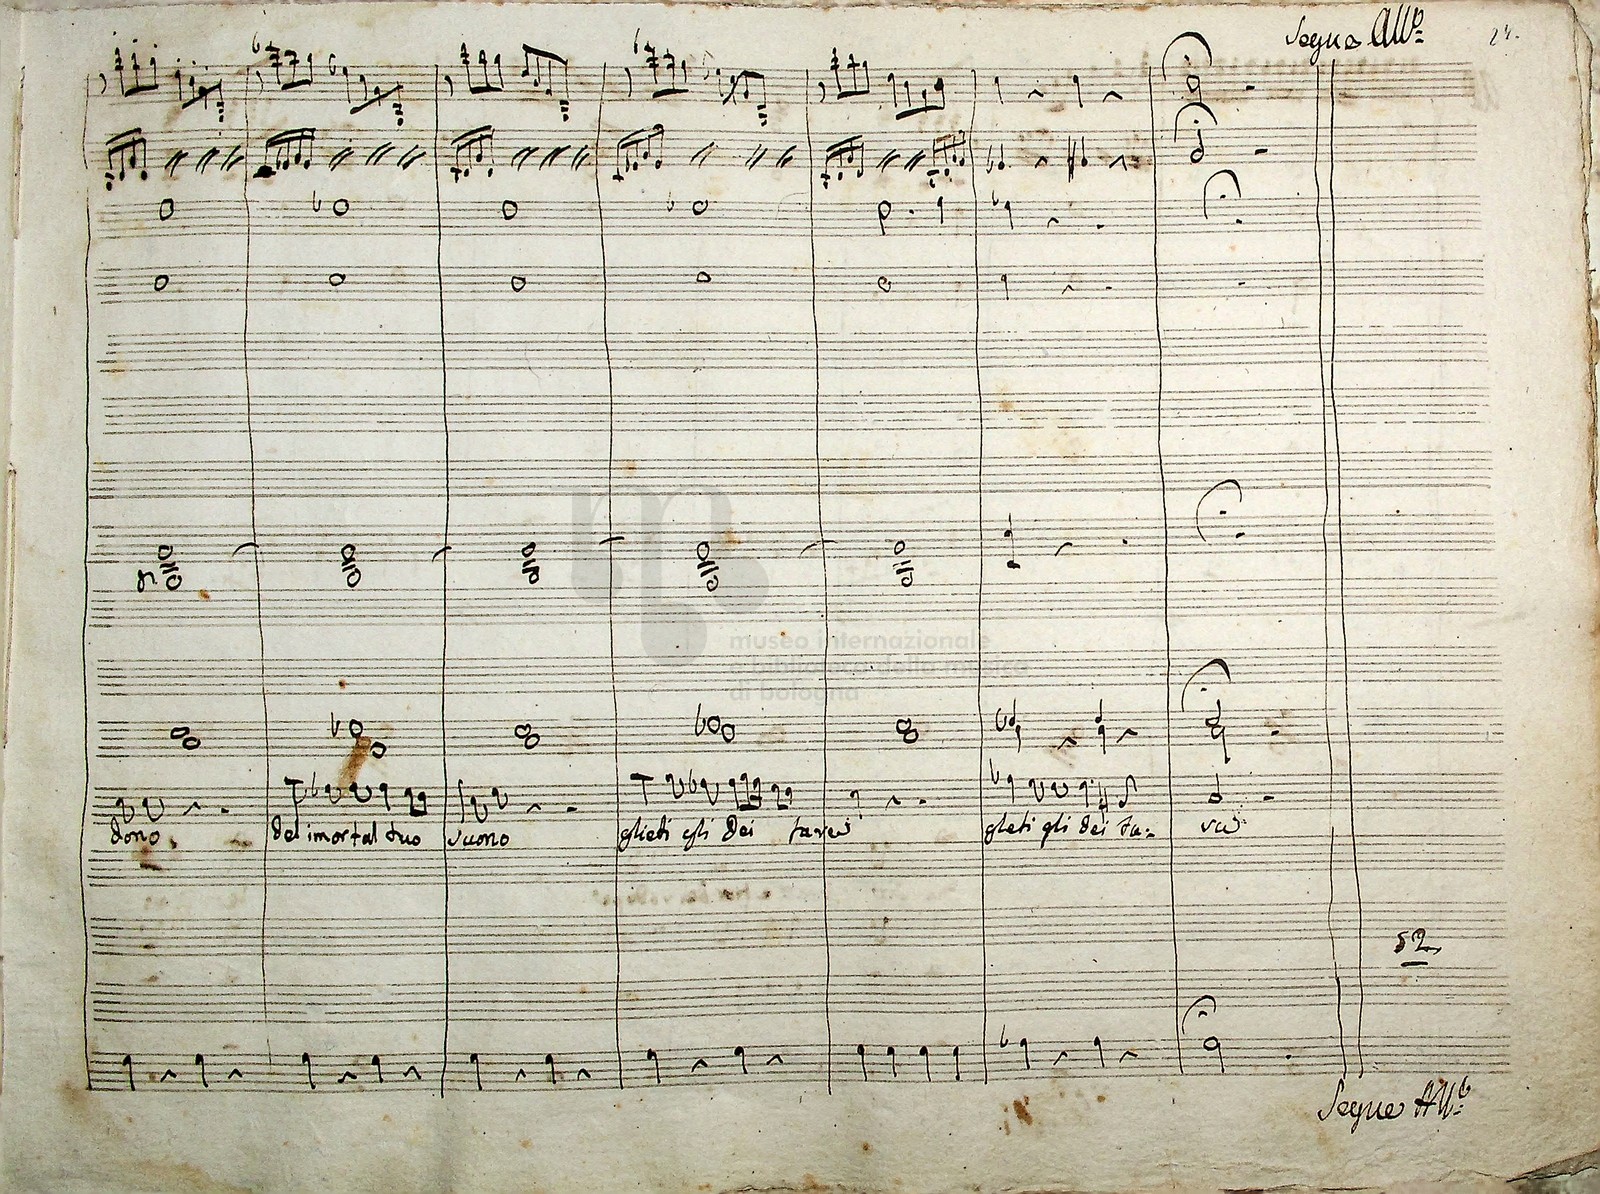 Segue All.º
24.
museo internazionale
e biblioteca della musica
di bologna
dono del imortal tuo suono glieti gli Dei gleti gli dei fa=
52
Segue All.º